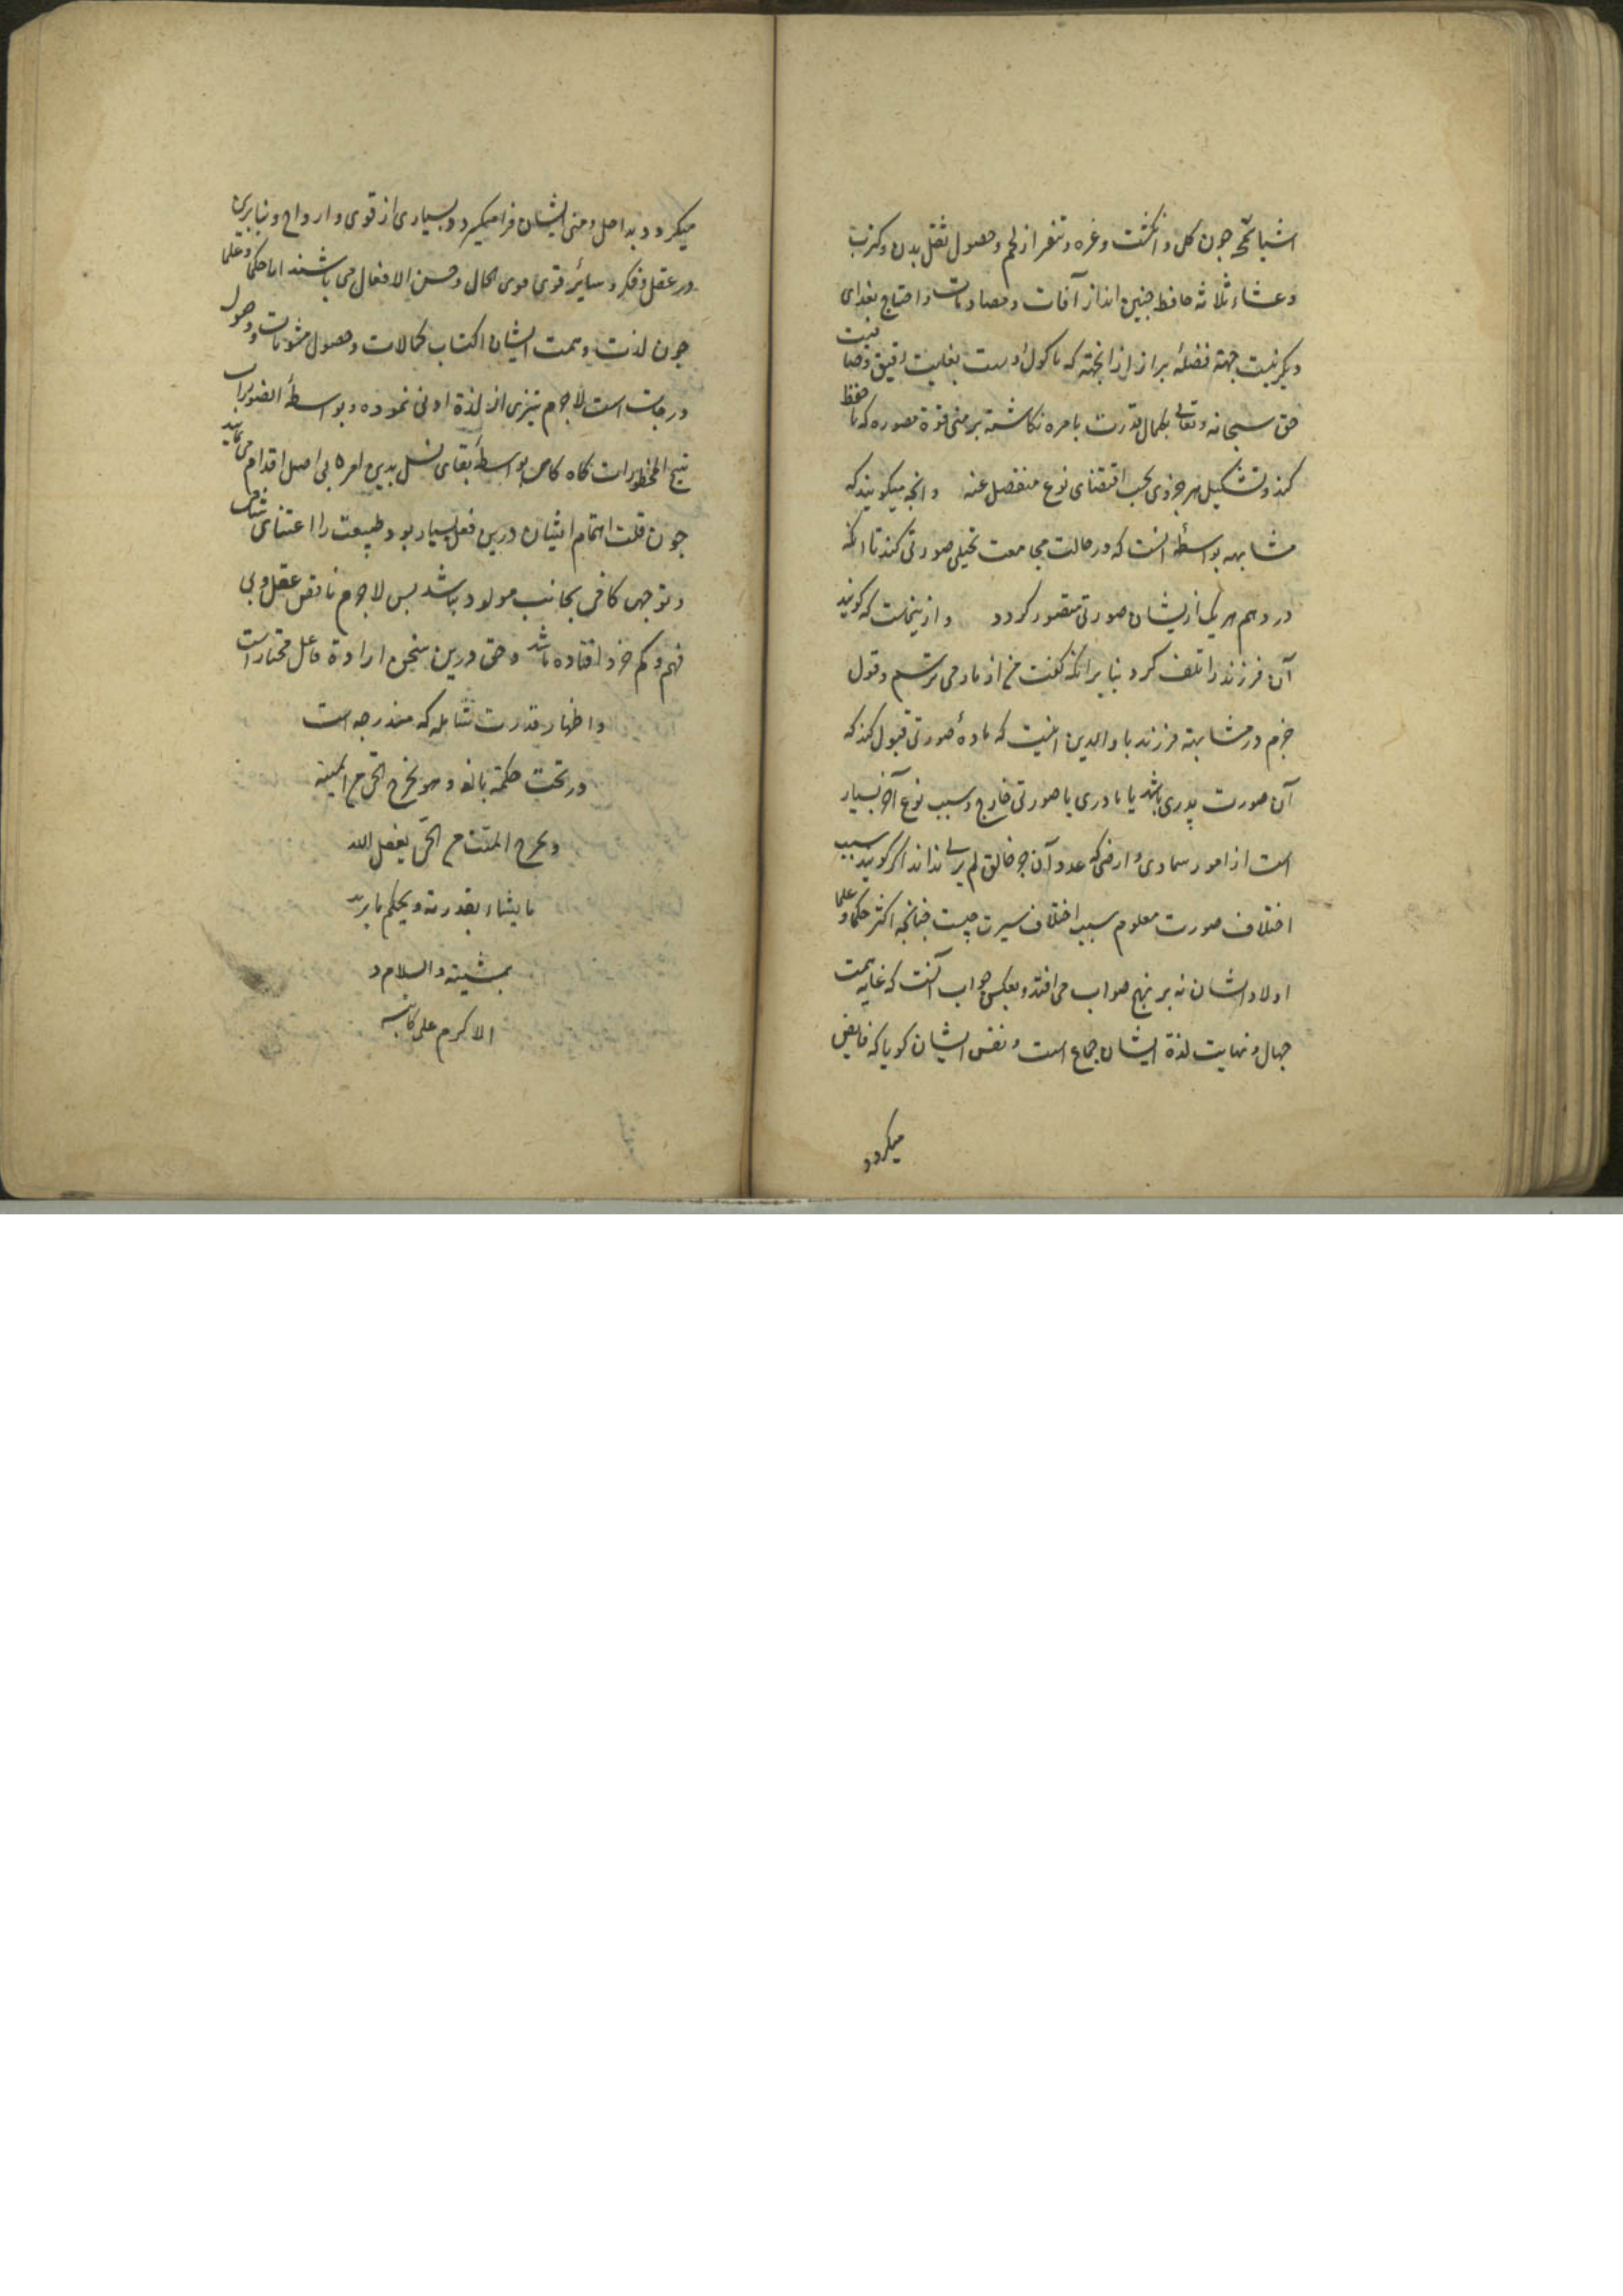 اشیا قبیحه چون کل و انکشت و غره و تنفر از لحم و حصول ثقل بدن و کرب
و غشاء ثلاثه حافظ جنین اند از آفات و مصادمات و احتیاج بغذای
دیکر نیست جهة فضلهٔ براز از آنجهته که ماکول اوست بغایت رقیق
حق سبحانه و تعالی بکمال قدرت باهره نکاشته بر منی قوة مصوره که تا حفظ
کند و تشکیل هر جزوی بحسب اقتضای نوع منفصل عنه و آنچه میکویند که
مشابهه بواسطهٔ آنست که در حالت مجامعت تخیلی صورتی کند تا آنکه
در وهم هر یک ازیشان صورتی متصور کردد و ازینجاست که کویند
آن فرزند را تلف کرد بنابر آنکه کفت من از مادر می ترسم و قول
جزم در مشابهة فرزند با والدین اینست که مادهٔ صورتی قبول کند که
آن صورت پدری باشد یا مادری یا صورتی خارج و سبب نوع آخر بسیار
است از امور سماوی و ارضی که عدد آن جز خالق لم یزلی نداند اکر کویند سبب
اختلاف صورت معلوم سبب اختلاف سیرت چیست چنانچه اکثر حکما و علما
اولاد ایشان نه بر نهج صواب می افتد و بعکس جواب آنست که غایه همت
جهال و نهایت لذة ایشان جماع است و نفس ایشان کویا که فایض
میکردد
میکردد به اصل و منی ایشان فرا میکیرد و بسیاری از قوی و ارواح و بنابرین
در عقل و فکر و سائر قوی قوی الحال و حسن الافعال می باشند اما حکما و علما
چون لذت و همت ایشان اکتساب کمالات و حصول مثوبات و وصول
درجات است لاجرم تبری از لذة ادنی نموده و بواسطهٔ الضرورات
تبیح المحظورات کاه کاهی بواسطهٔ بقای نسل بدین امر بی اصل اقدام می نمایند
چون قلت اهتمام ایشان درین فعل بسیار بود طبیعت را اعتنای شافی
و توجهی کافی بجانب مولود نباشد پس لاجرم ناقص عقل و بی
فهم و کم خرد افتاده باشد و حق درین سخن ارادة فاعل مختار است
و اظهار قدرت شامله که مندرجه است
در تحت حکمة بالغه و هو یخرج الحی من المیته
و یخرج المیت من الحی یفعل الله
ما یشاء بقدرته و یحکم ما یرید
بمشیته و السلام و
الاکرام علی کاتبه